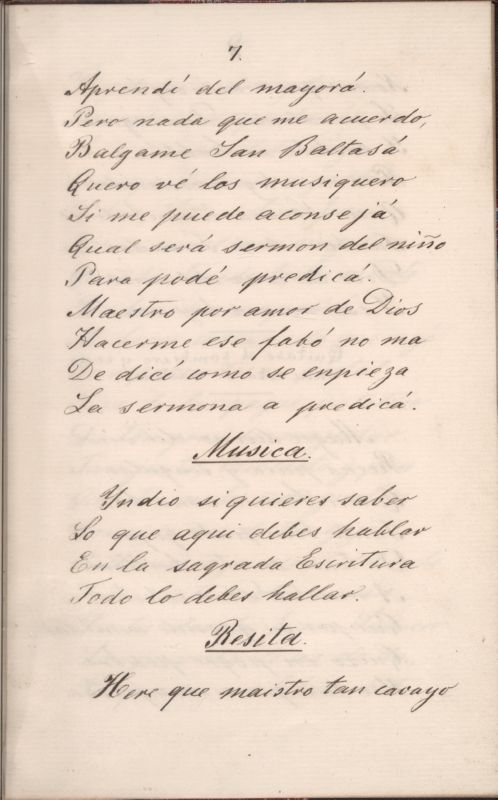 7.
Aprendí del mayorá.
Pero nada que me acuerdo,
Balgame San Baltasá
Quero vé los musiquero
Si me puede aconsejá
Qual será sermon del niño
Para podé predicá.
Maestro por amor de Dios
Hacerme ese fabó no ma
De dicí como se enpieza
La sermona a predicá.
Musica.
Yndio si quieres saber
Lo que aqui debes hablar
En la sagrada Escritura
Todo lo debes hallar.
Resita.
Here que maistro tan cacayo